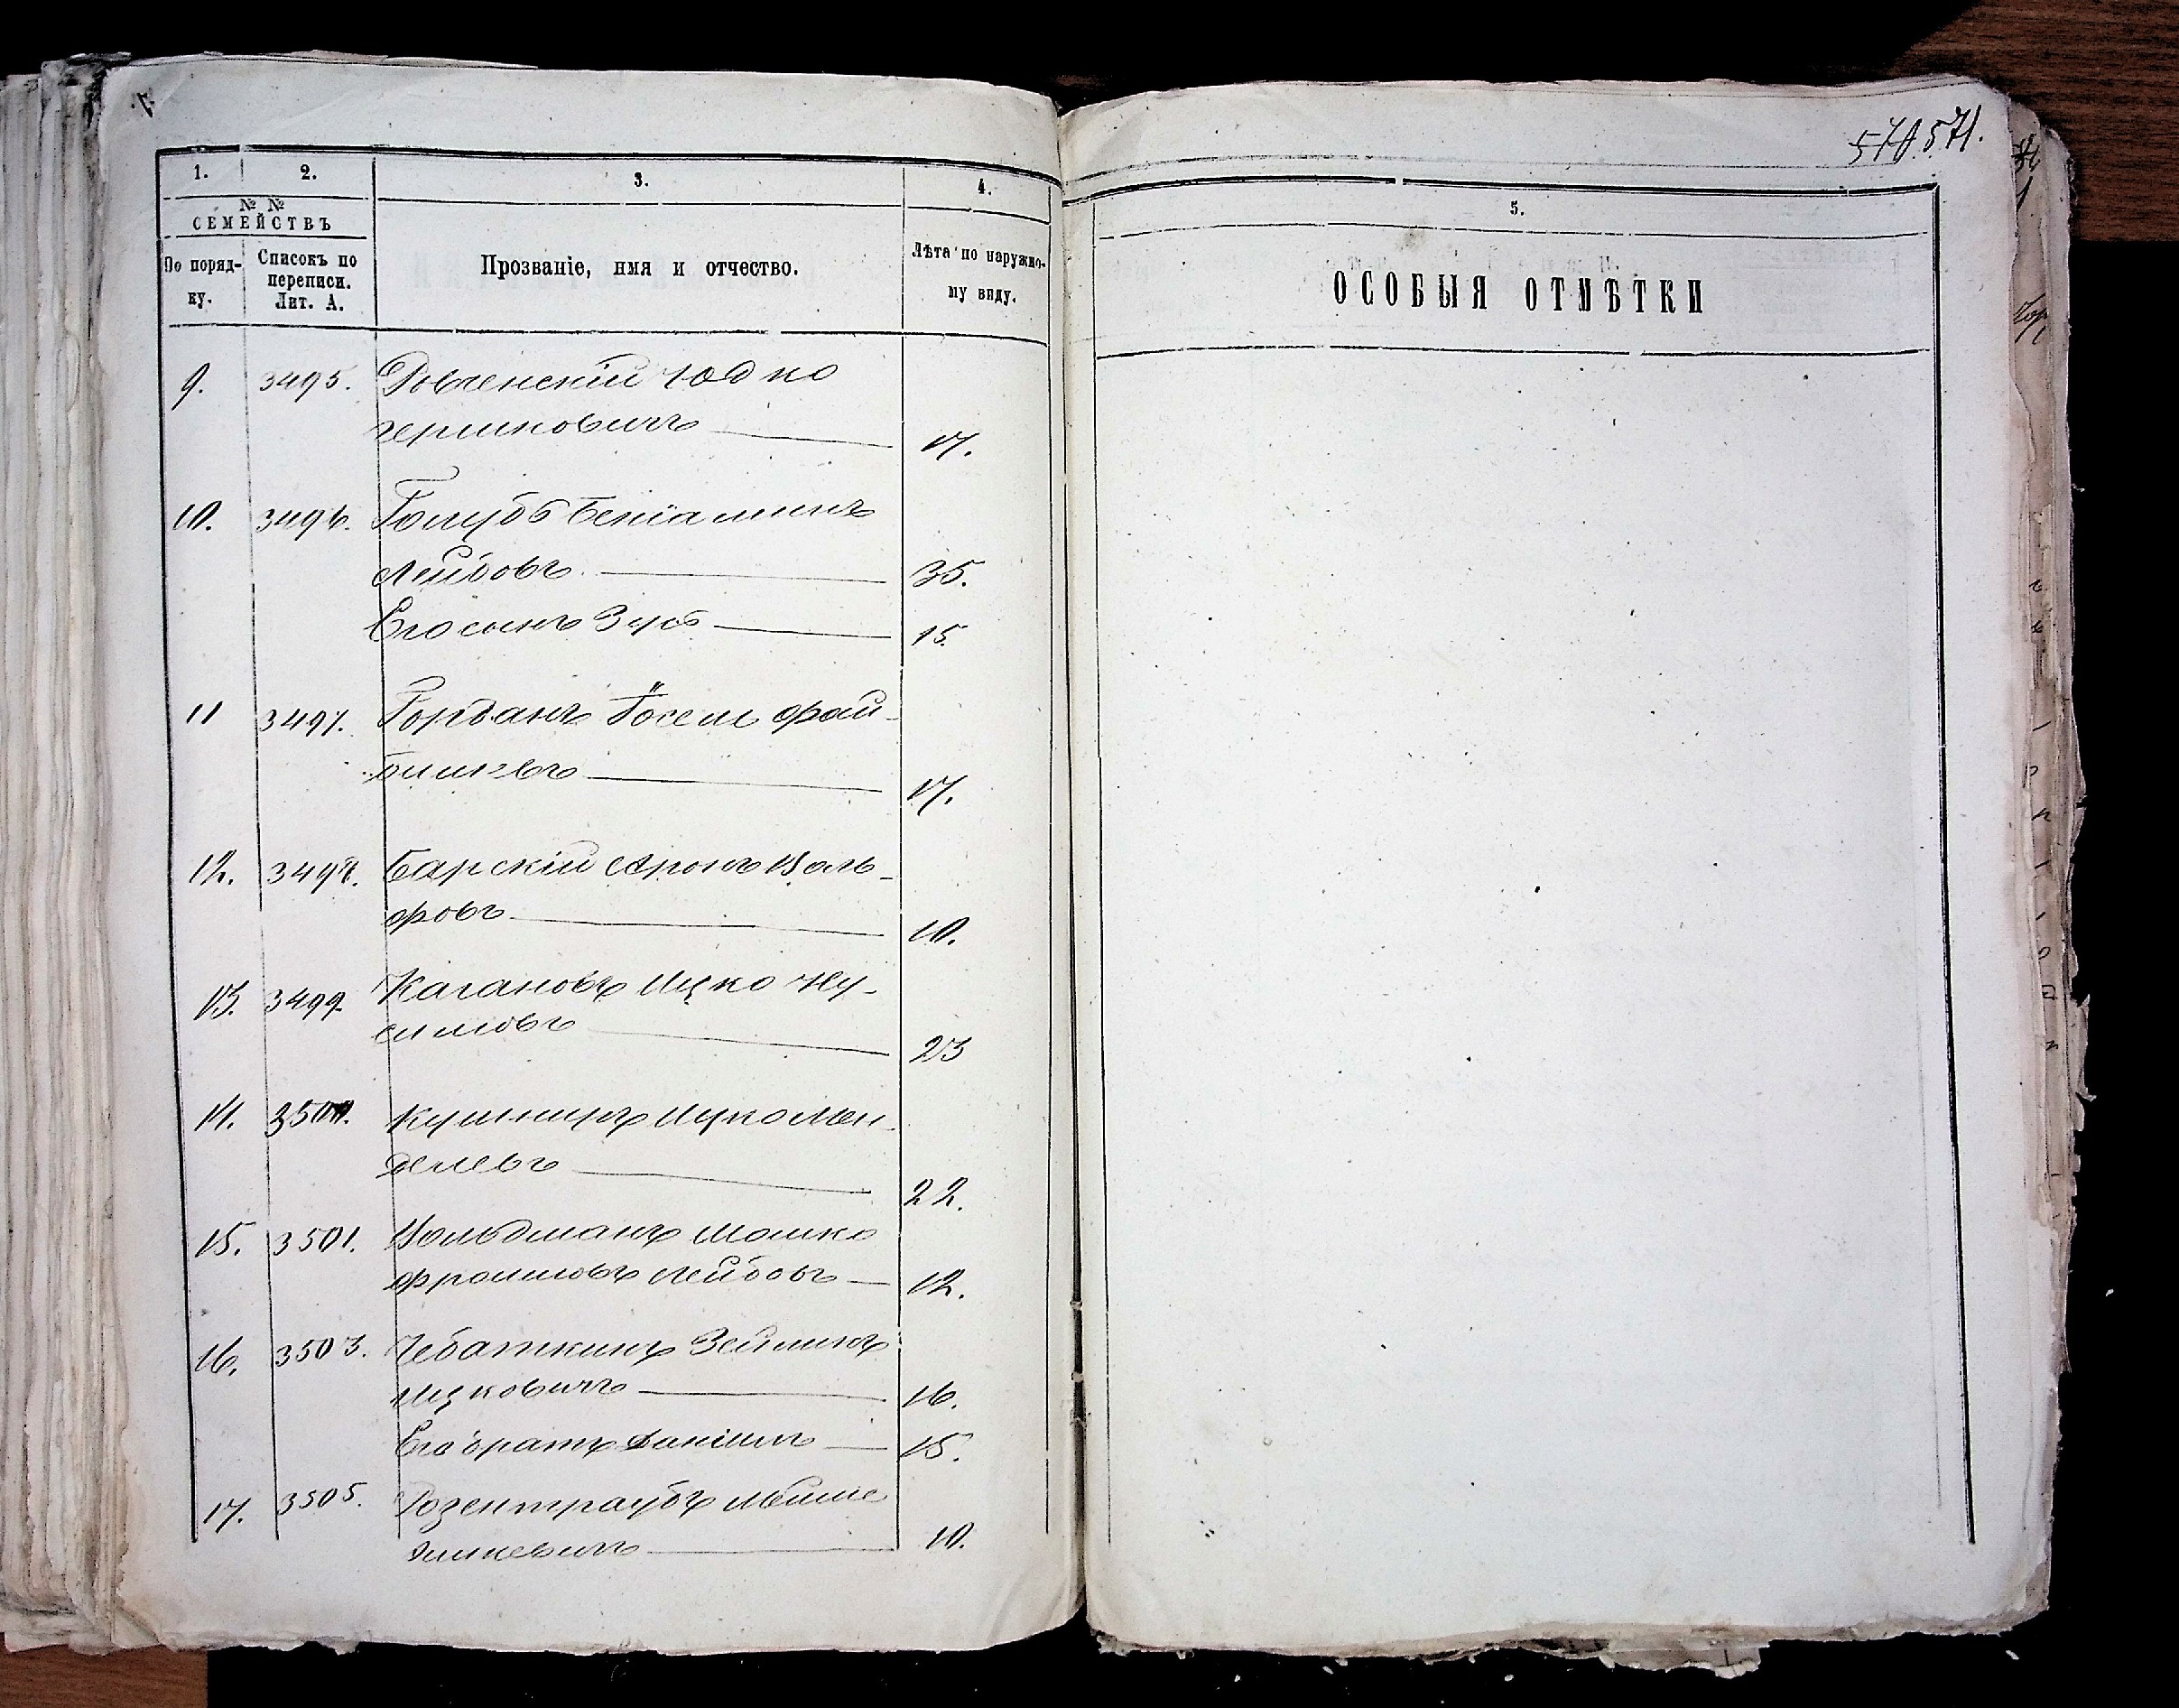 570. 571.
1. 2. 3. 4. 5.
№ №
СЕМЕЙСТВЪ
По поряд-
ку.
Списокъ по
переписи.
Лит. А.
Прозваніе, имя и отчество.
Лѣта по наружно-
му виду.
ОСОБЫЯ ОТМѢТКИ
9. 3495. Ровченскій Юдко
Гершковичъ 17.
10. 3496. Голубъ Беніаминъ
Лейбовъ 35.
Его сынъ Зусь 15.
11 3497. Горданъ Іосель Фай-
17.
12. 3498. Барскій Аронъ Воль-
фовъ 10.
13. 3499. Кагановъ Ицко Ну-
симовъ 23
14. 3500. Кушниръ Ицко Мен-
делевъ 22.
15. 3501. Вольдманъ Мошко
Фроимовъ Лейбовъ 12.
16. 3503. Чебаткинъ Зейликъ
Ицковичъ 16.
Его братъ Даніилъ 15.
17. 3505. Розентраубъ
10.